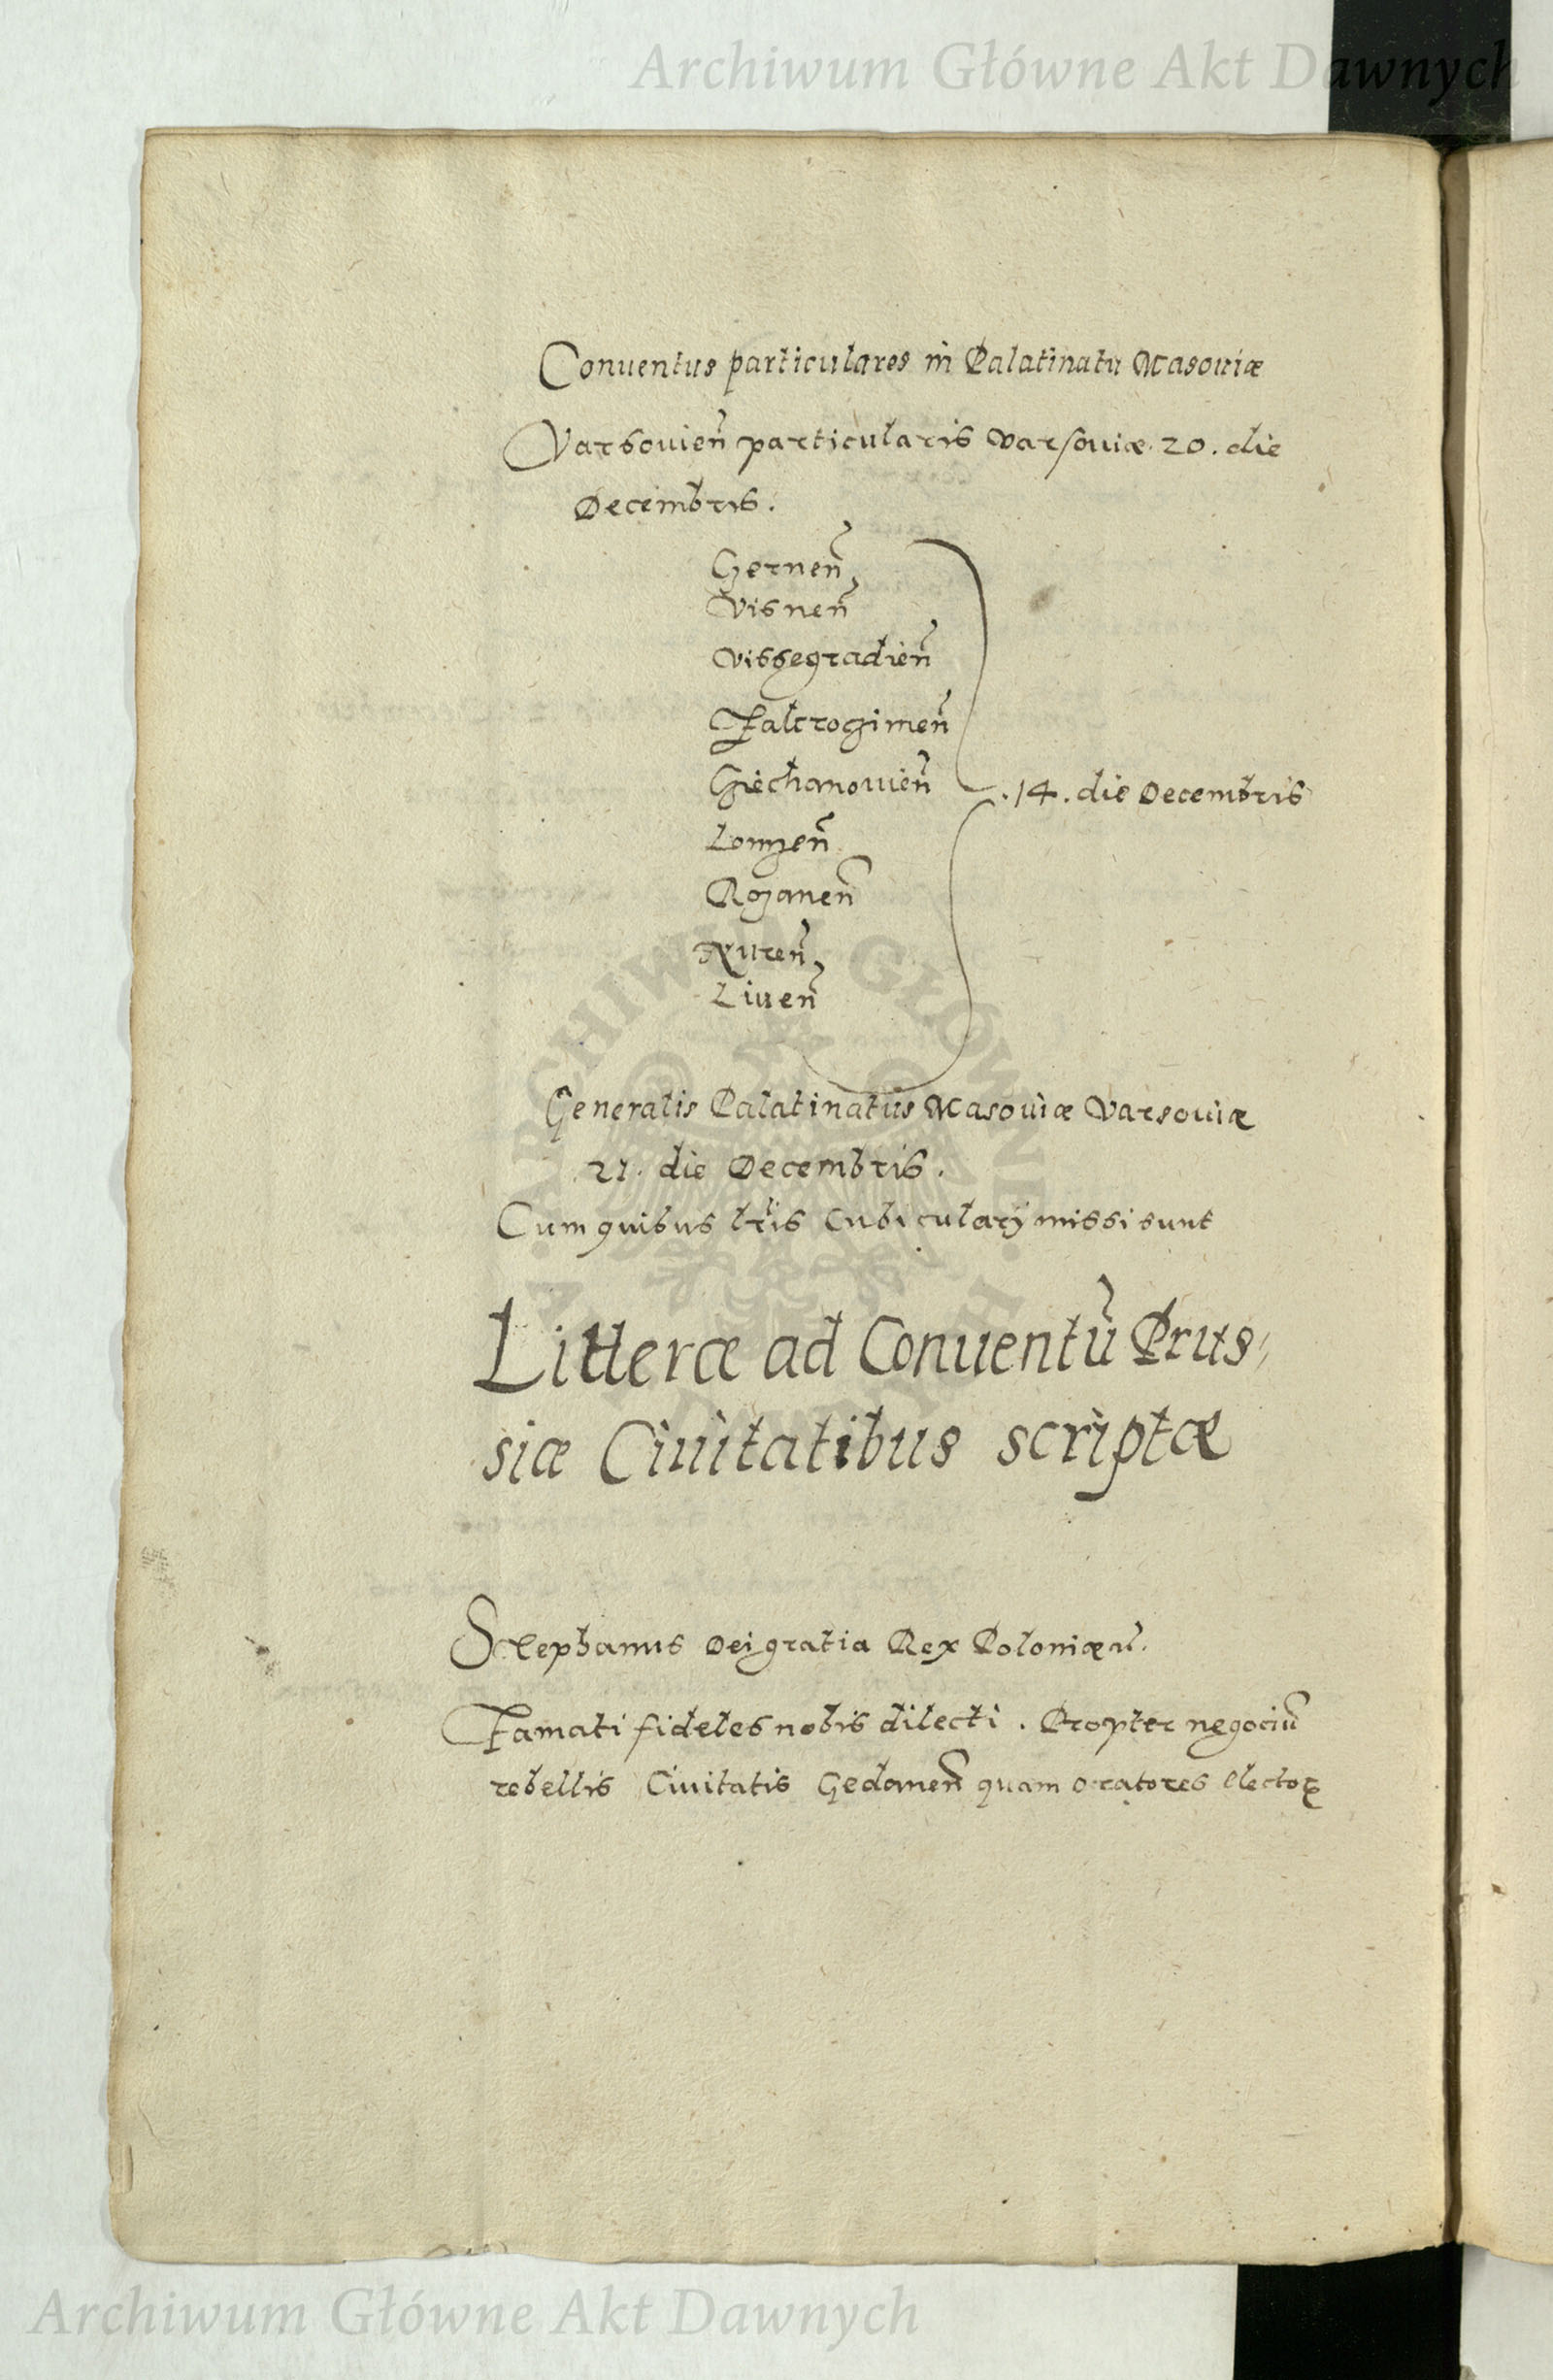 Archiwum Główne Akt Dawnych
Conuentus particulares in Palatinatu Masouiæ
Varsouien̄ particularis Varsouiæ. 20. die
Decembris.
Czernen̄
Visnen̄
Vissegradien̄
Zakroczimen̄
Cziechanouien̄
.14. die Decembris
Lomzen̄
Rozanen̄
Nuren̄
Liuen̄
Generalis Palatinatus Masouiæ Varsouiæ
27. die Decembris.
Cum quibus lr̄is cubicularij missi sunt
Litteræ ad Conuentū Prus⸗
siæ Ciuitatibus scriptæ
Stephanus Dei gratia Rex Poloniæ
Famati fideles nobis dilecti. Propter negociū
rebellis Ciuitatis Gedanen̄ quam oratores Electoꝝ
ARCHIWUM GŁÓWNE AKT DAWNYCH
Archiwum Główne Akt Dawnych